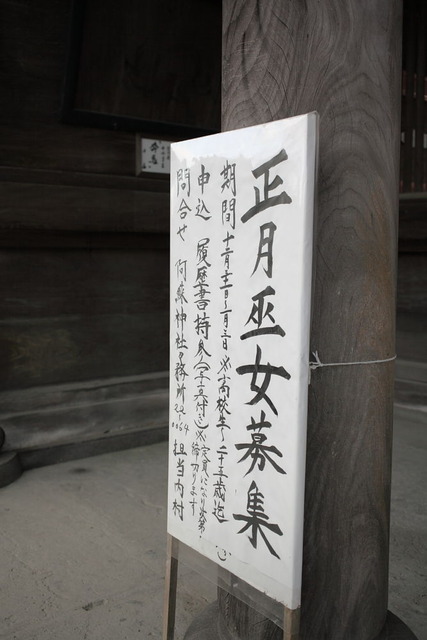 正月巫女募集
期間 十二月三十一日〜一月三日 ※高校生〜二十五歳迄
申込 履歴書持参(写真付き)※定員になり次第、締切ります
問合せ 阿蘇神社社務所 22-0064 担当内村